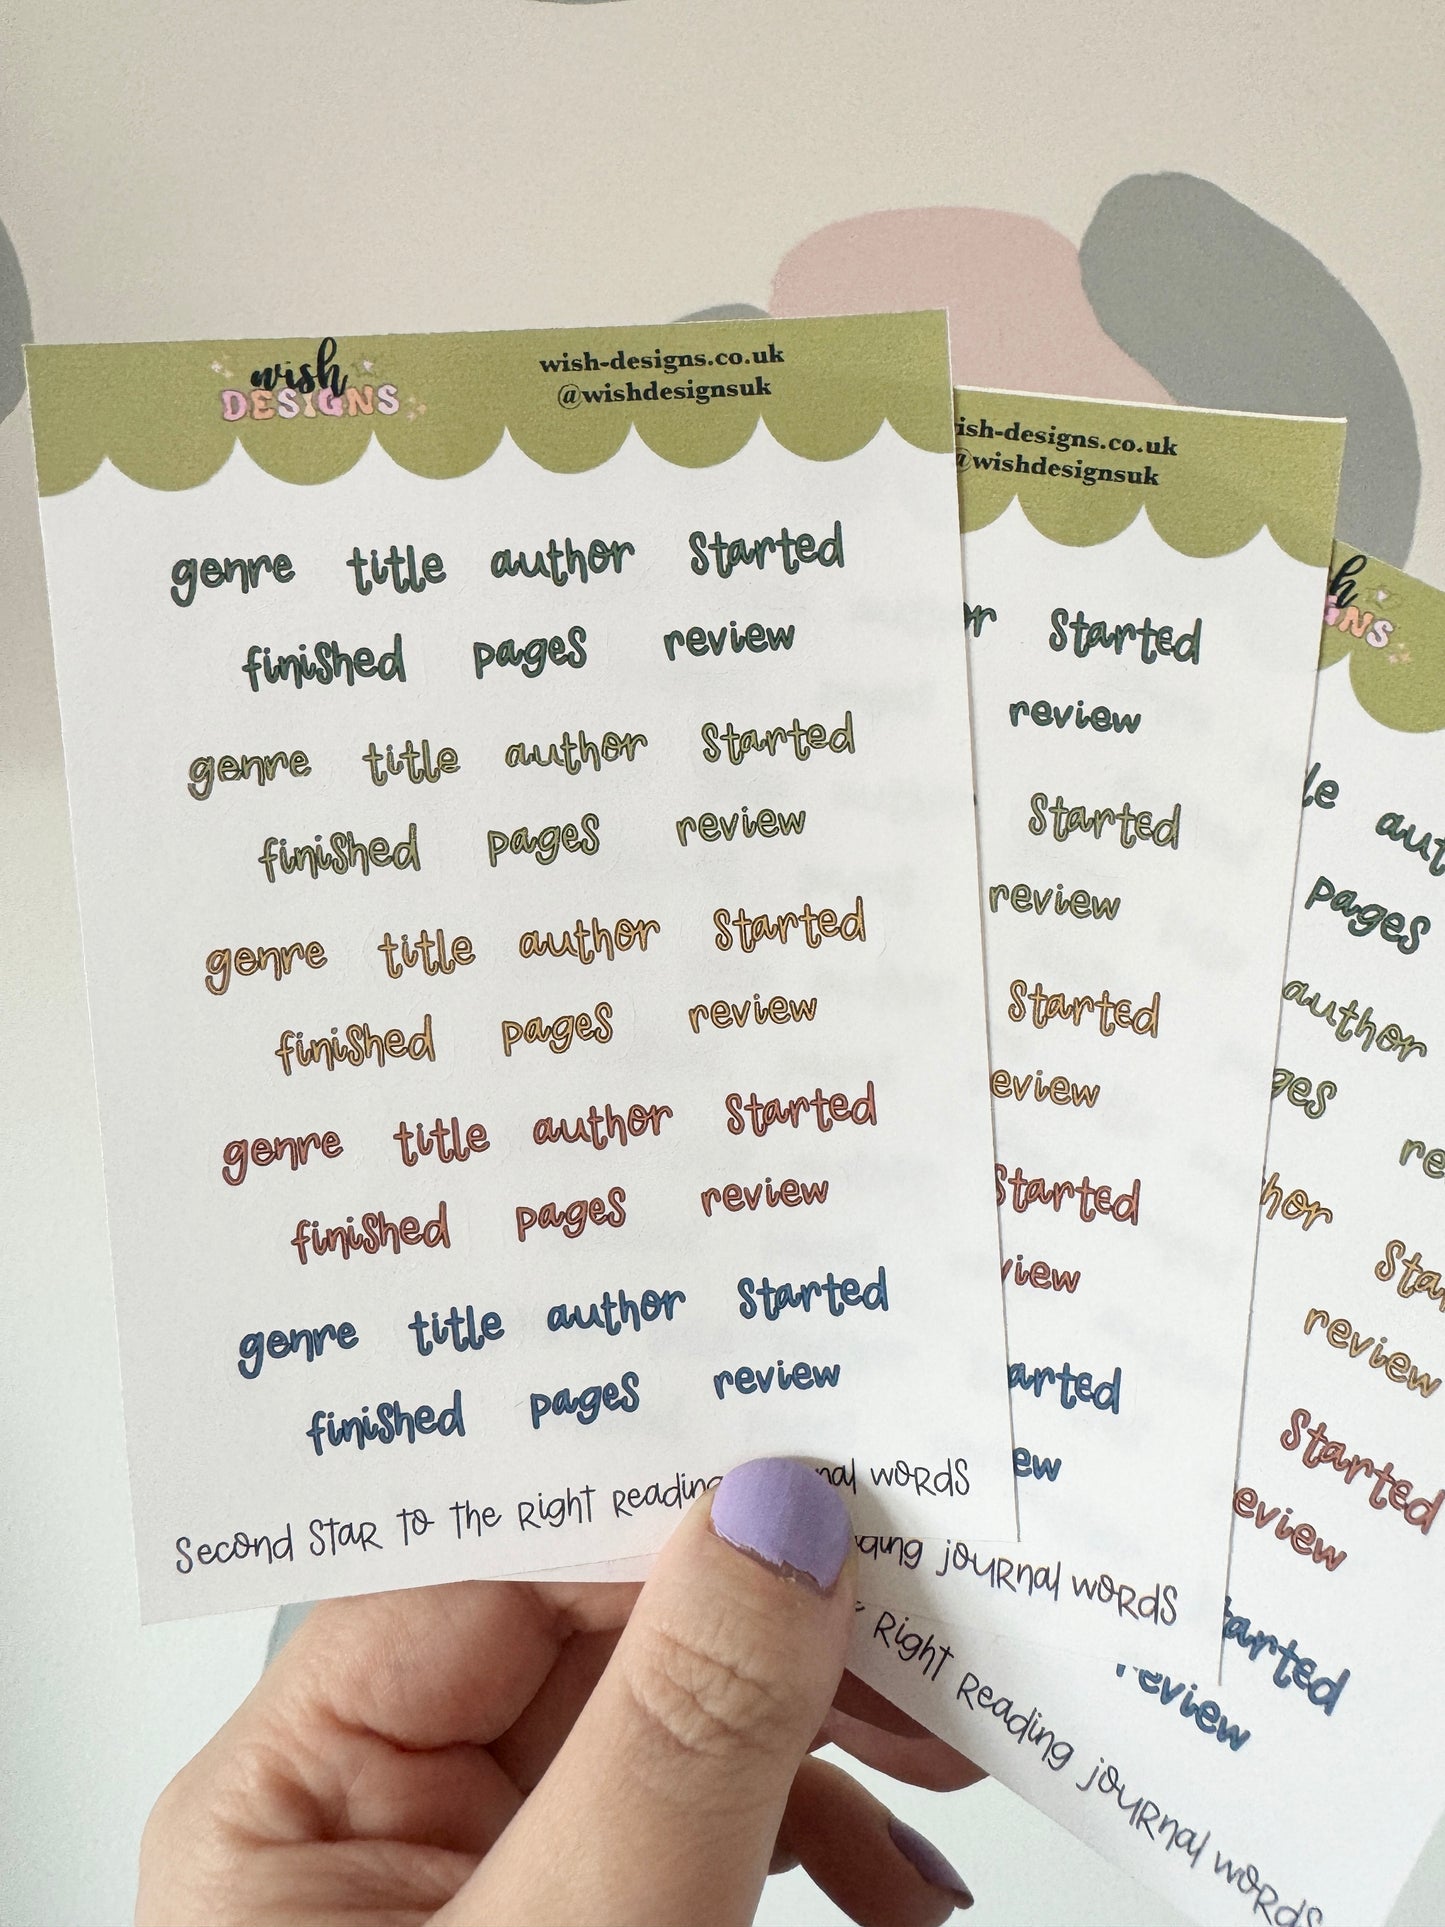 wish
DESIGNS
wish-designs.co.uk
@wishdesignsuk
genre title author Started
finished pages review
genre title author Started
finished pages review
genre title author Started
finished pages review
genre title author Started
finished pages review
genre title author Started
finished pages review
Second Star to the Right Reading words
ish-designs.co.uk
@wishdesignsuk
Started
review
Started
review
Started
eview
Started
view
arted
ew
journal words
pages
author
ges
hor
review
Started
eview
arted
review
Right Reading journal words